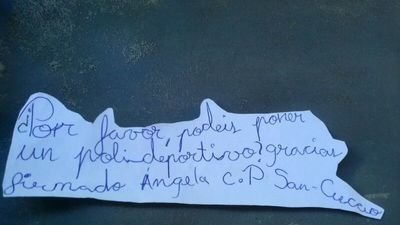 ¿Por favor, podeis poner
un poli-deportivo? gracias
firmado Ángela C.P San-Cucao